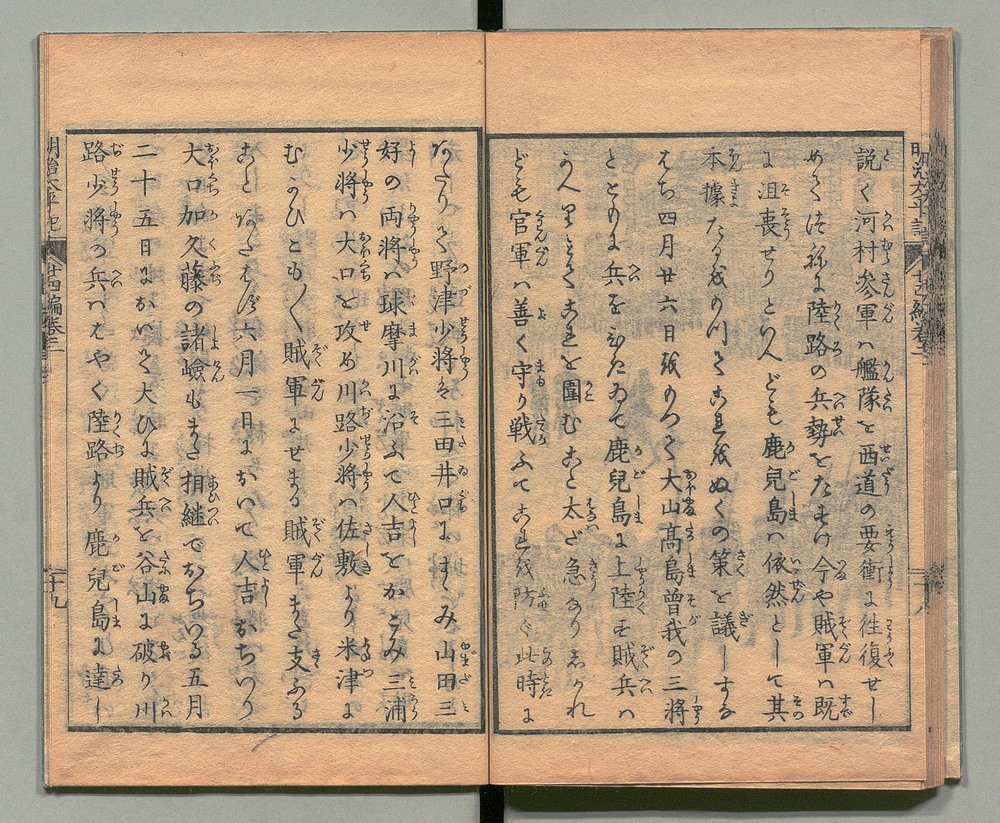 明治太平記 廿四編巻二
説く河村参軍ハ艦隊を西道の要衝に往復せし
めさ陸路の兵勢をたすけ今や賊軍ハ既
に沮喪せりといへども鹿児島ハ依然として其
本據たるをもつてこれをぬくの策を議しすな
はち四月廿六日をもつて大山高島曾我の三将
とともに兵をひきゐて鹿児島に上陸す賊兵ハ
これを圍むこと太だ急なりしかれ
ども官軍ハ善く守り戦ふてこれを防ぐ此時に
十八
明治太平記 廿四編巻二
あたりて野津少将ハ三田井口にすゝみ山田三
好の両将ハ球摩川に沿ふて人吉をかこみ三浦
少将ハ大口を攻め川路少将ハ佐敷より米津に
むかひこも〴〵賊軍にせまる賊軍また支ふる
ことあたはず六月一日において人吉おちいり
大口加久藤の諸嶮もまた相継でおちいる五月
二十五日において大ひに賊兵を谷山に破り川
路少将の兵ハはやく陸路より鹿児島に達し
十九